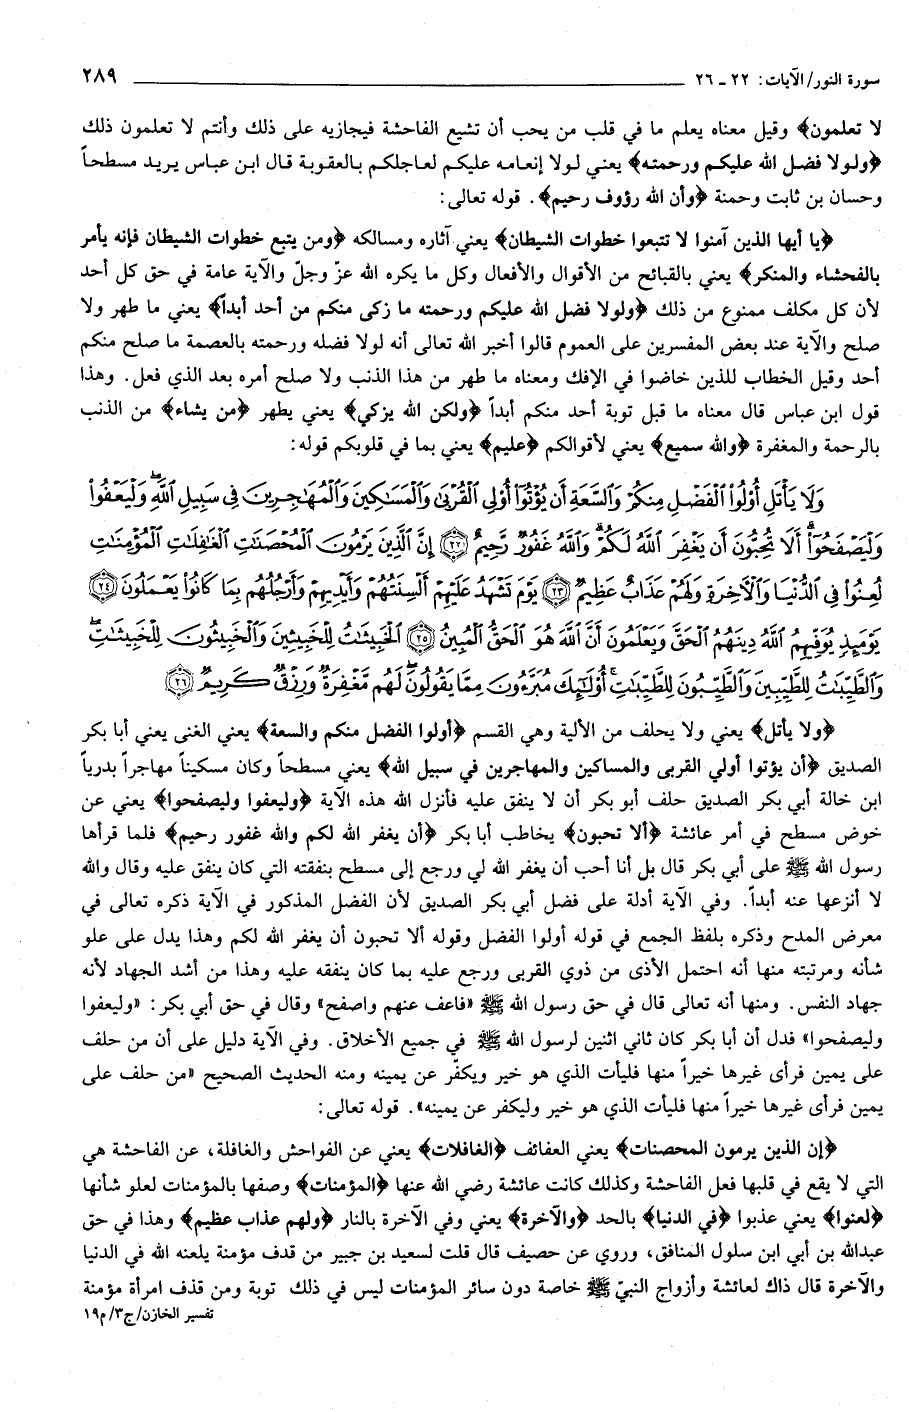 سورة النور/ الآيات: ٢٢ ـ ٢٦ ٢٨٩
لا تعلمون﴾ وقيل معناه يعلم ما في قلب من يحب أن تشيع الفاحشة فيجازيه على ذلك وأنتم لا تعلمون ذلك
﴿ولولا فضل الله عليكم ورحمته﴾ يعني لولا إنعامه عليكم لعاجلكم بالعقوبة قال ابن عباس يريد مسطحاً
وحسان بن ثابت وحمنة ﴿وأن الله رؤوف رحيم﴾. قوله تعالى:
﴿يا أيها الذين آمنوا لا تتبعوا خطوات الشيطان﴾ يعني آثاره ومسالكه ﴿ومن يتبع خطوات الشيطان فإنه يأمر
بالفحشاء والمنكر﴾ يعني بالقبائح من الأقوال والأفعال وكل ما يكره الله عزّ وجلّ والآية عامة في حق كل أحد
لأن كل مكلف ممنوع من ذلك ﴿ولولا فضل الله عليكم ورحمته ما زكى منكم من أحد أبداً﴾ يعني ما طهر ولا
صلح والآية عند بعض المفسرين على العموم قالوا أخبر الله تعالى أنه لولا فضله ورحمته بالعصمة ما صلح منكم
أحد وقيل الخطاب للذين خاضوا في الإفك ومعناه ما طهر من هذا الذنب ولا صلح أمره بعد الذي فعل. وهذا
قول ابن عباس قال معناه ما قبل توبة أحد منكم أبداً ﴿ولكن الله يزكي﴾ يعني يطهر ﴿من يشاء﴾ من الذنب
بالرحمة والمغفرة ﴿والله سميع﴾ يعني لأقوالكم ﴿عليم﴾ يعني بما في قلوبكم قوله:
وَلَا يَأْتَلِ أُوْلُوا۟ ٱلْفَضْلِ مِنكُمْ وَٱلسَّعَةِ أَن يُؤْتُوٓا۟ أُو۟لِى ٱلْقُرْبَىٰ وَٱلْمَسَـٰكِينَ وَٱلْمُهَـٰجِرِينَ فِى سَبِيلِ ٱللَّهِ ۖ وَلْيَعْفُوا۟
وَلْيَصْفَحُوٓا۟ ۗ أَلَا تُحِبُّونَ أَن يَغْفِرَ ٱللَّهُ لَكُمْ ۗ وَٱللَّهُ غَفُورٌ رَّحِيمٌ ﴿٢٢﴾ إِنَّ ٱلَّذِينَ يَرْمُونَ ٱلْمُحْصَنَـٰتِ ٱلْغَـٰفِلَـٰتِ ٱلْمُؤْمِنَـٰتِ
لُعِنُوا۟ فِى ٱلدُّنْيَا وَٱلْـَٔاخِرَةِ وَلَهُمْ عَذَابٌ عَظِيمٌ ﴿٢٣﴾ يَوْمَ تَشْهَدُ عَلَيْهِمْ أَلْسِنَتُهُمْ وَأَيْدِيهِمْ وَأَرْجُلُهُم بِمَا كَانُوا۟ يَعْمَلُونَ ﴿٢٤﴾
يَوْمَئِذٍ يُوَفِّيهِمُ ٱللَّهُ دِينَهُمُ ٱلْحَقَّ وَيَعْلَمُونَ أَنَّ ٱللَّهَ هُوَ ٱلْحَقُّ ٱلْمُبِينُ ﴿٢٥﴾ ٱلْخَبِيثَـٰتُ لِلْخَبِيثِينَ وَٱلْخَبِيثُونَ لِلْخَبِيثَـٰتِ ۖ
وَٱلطَّيِّبَـٰتُ لِلطَّيِّبِينَ وَٱلطَّيِّبُونَ لِلطَّيِّبَـٰتِ ۚ أُو۟لَـٰٓئِكَ مُبَرَّءُونَ مِمَّا يَقُولُونَ ۖ لَهُم مَّغْفِرَةٌ وَرِزْقٌ كَرِيمٌ ﴿٢٦﴾
﴿ولا يأتل﴾ يعني ولا يحلف من الألية وهي القسم ﴿أولوا الفضل منكم والسعة﴾ يعني الغنى يعني أبا بكر
الصديق ﴿أن يؤتوا أولي القربى والمساكين والمهاجرين في سبيل الله﴾ يعني مسطحاً وكان مسكيناً مهاجراً بدرياً
ابن خالة أبي بكر الصديق حلف أبو بكر أن لا ينفق عليه فأنزل الله هذه الآية ﴿وليعفوا وليصفحوا﴾ يعني عن
خوض مسطح في أمر عائشة ﴿ألا تحبون﴾ يخاطب أبا بكر ﴿أن يغفر الله لكم والله غفور رحيم﴾ فلما قرأها
رسول الله ﷺ على أبي بكر قال بل أنا أحب أن يغفر الله لي ورجع إلى مسطح بنفقته التي كان ينفق عليه وقال والله
لا أنزعها عنه أبداً. وفي الآية أدلة على فضل أبي بكر الصديق لأن الفضل المذكور في الآية ذكره تعالى في
معرض المدح وذكره بلفظ الجمع في قوله أولوا الفضل وقوله ألا تحبون أن يغفر الله لكم وهذا يدل على علو
شأنه ومرتبته منها أنه احتمل الأذى من ذوي القربى ورجع عليه بما كان ينفقه عليه وهذا من أشد الجهاد لأنه
جهاد النفس. ومنها أنه تعالى قال في حق رسول الله ﷺ «فاعف عنهم واصفح» وقال في حق أبي بكر: «وليعفوا
وليصفحوا» فدل أن أبا بكر كان ثاني اثنين لرسول الله ﷺ في جميع الأخلاق. وفي الآية دليل على أن من حلف
على يمين فرأى غيرها خيراً منها فليأت الذي هو خير ويكفّر عن يمينه ومنه الحديث الصحيح «من حلف على
يمين فرأى غيرها خيراً منها فليأت الذي هو خير وليكفر عن يمينه». قوله تعالى:
﴿إن الذين يرمون المحصنات﴾ يعني العفائف ﴿الغافلات﴾ يعني عن الفواحش والغافلة، عن الفاحشة هي
التي لا يقع في قلبها فعل الفاحشة وكذلك كانت عائشة رضي الله عنها ﴿المؤمنات﴾ وصفها بالمؤمنات لعلو شأنها
﴿لعنوا﴾ يعني عذبوا ﴿في الدنيا﴾ بالحد ﴿والآخرة﴾ يعني وفي الآخرة بالنار ﴿ولهم عذاب عظيم﴾ وهذا في حق
عبدالله بن أبي ابن سلول المنافق، وروي عن حصيف قال قلت لسعيد بن جبير من قدف مؤمنة يلعنه الله في الدنيا
والآخرة قال ذاك لعائشة وأزواج النبيّ ﷺ خاصة دون سائر المؤمنات ليس في ذلك توبة ومن قذف امرأة مؤمنة
تفسير الخازن/ج٣/م١٩